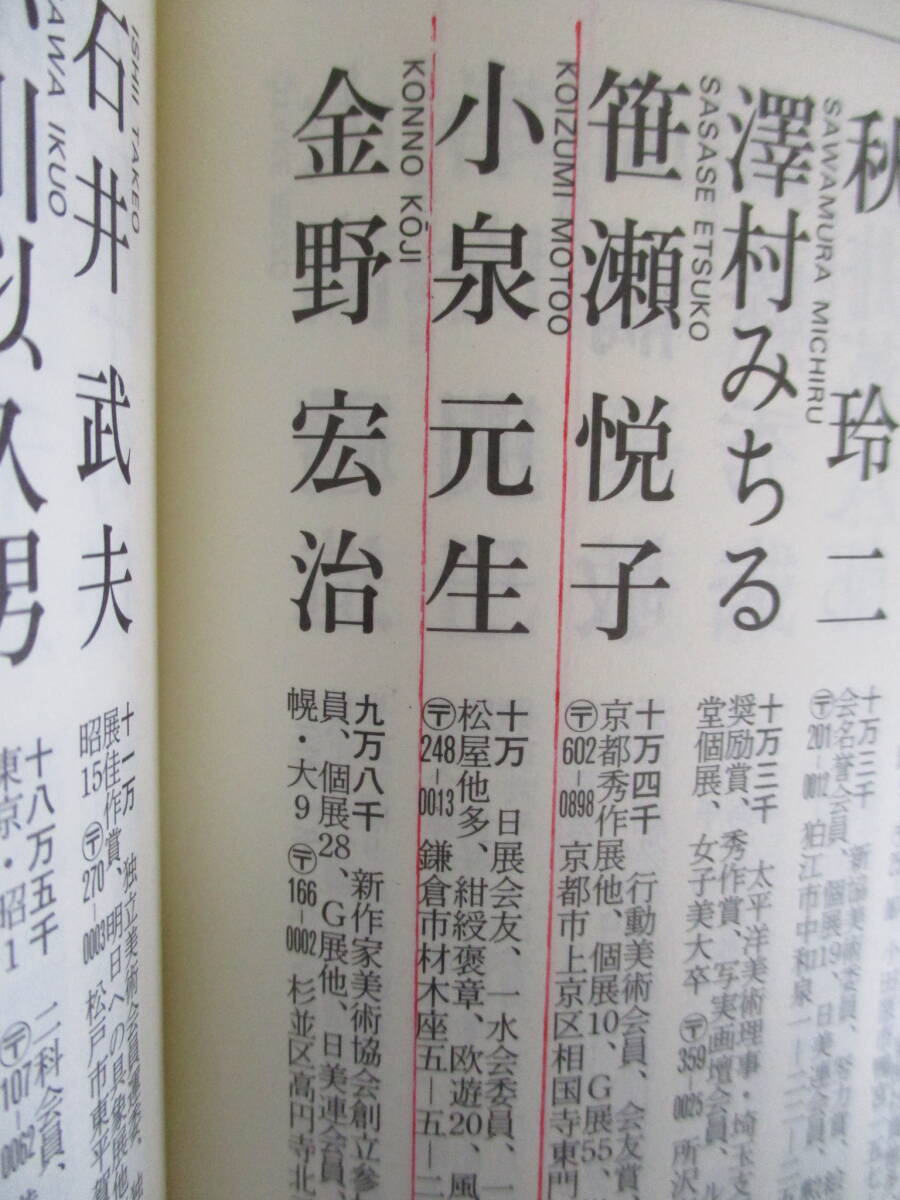 秋 玲二
十万三千
会名誉会員、個展19、日美連会員、
〒201-0012 狛江市中和泉一
SAWAMURA MICHIRU
澤村みちる
十万三千 太平洋美術理事・埼玉支
奨励賞、秀作賞、写実画壇会員、
堂個展、女子美大卒 〒359-0025 所沢
SASASE ETSUKO
笹瀬悦子
十万四千 行動美術会員、会友賞、
京都秀作展他、個展10、G展55、
〒602-0898 京都市上京区相国寺東門
KOIZUMI MOTOO
小泉元生
十万 日展会友、一水会委員、一
松屋他多、紺綬褒章、欧遊20、風
〒248-0013 鎌倉市材木座五―五―二
KONNO KŌJI
金野宏治
九万八千 新作家美術協会創立参
員、個展28、G展他、日美連会員、
幌・大9 〒166-0002 杉並区高円寺北
ISHII TAKEO
石井武夫
十一万 独立美術会員運委、
展佳作賞、明日への具象展他
昭15 〒270-0003 松戸市東平賀
AWA IKUO
川以久男
十八万五千 二科会員、
東京・昭1 〒107-0062